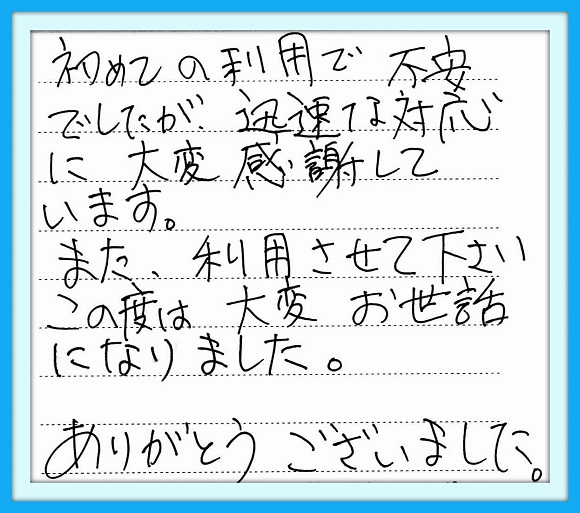 初めての利用で 不安
でしたが、迅速な対応
に 大変 感謝して
います。
また、利用させて下さい
この度は 大変 お世話
になりました。
ありがとう ございました。